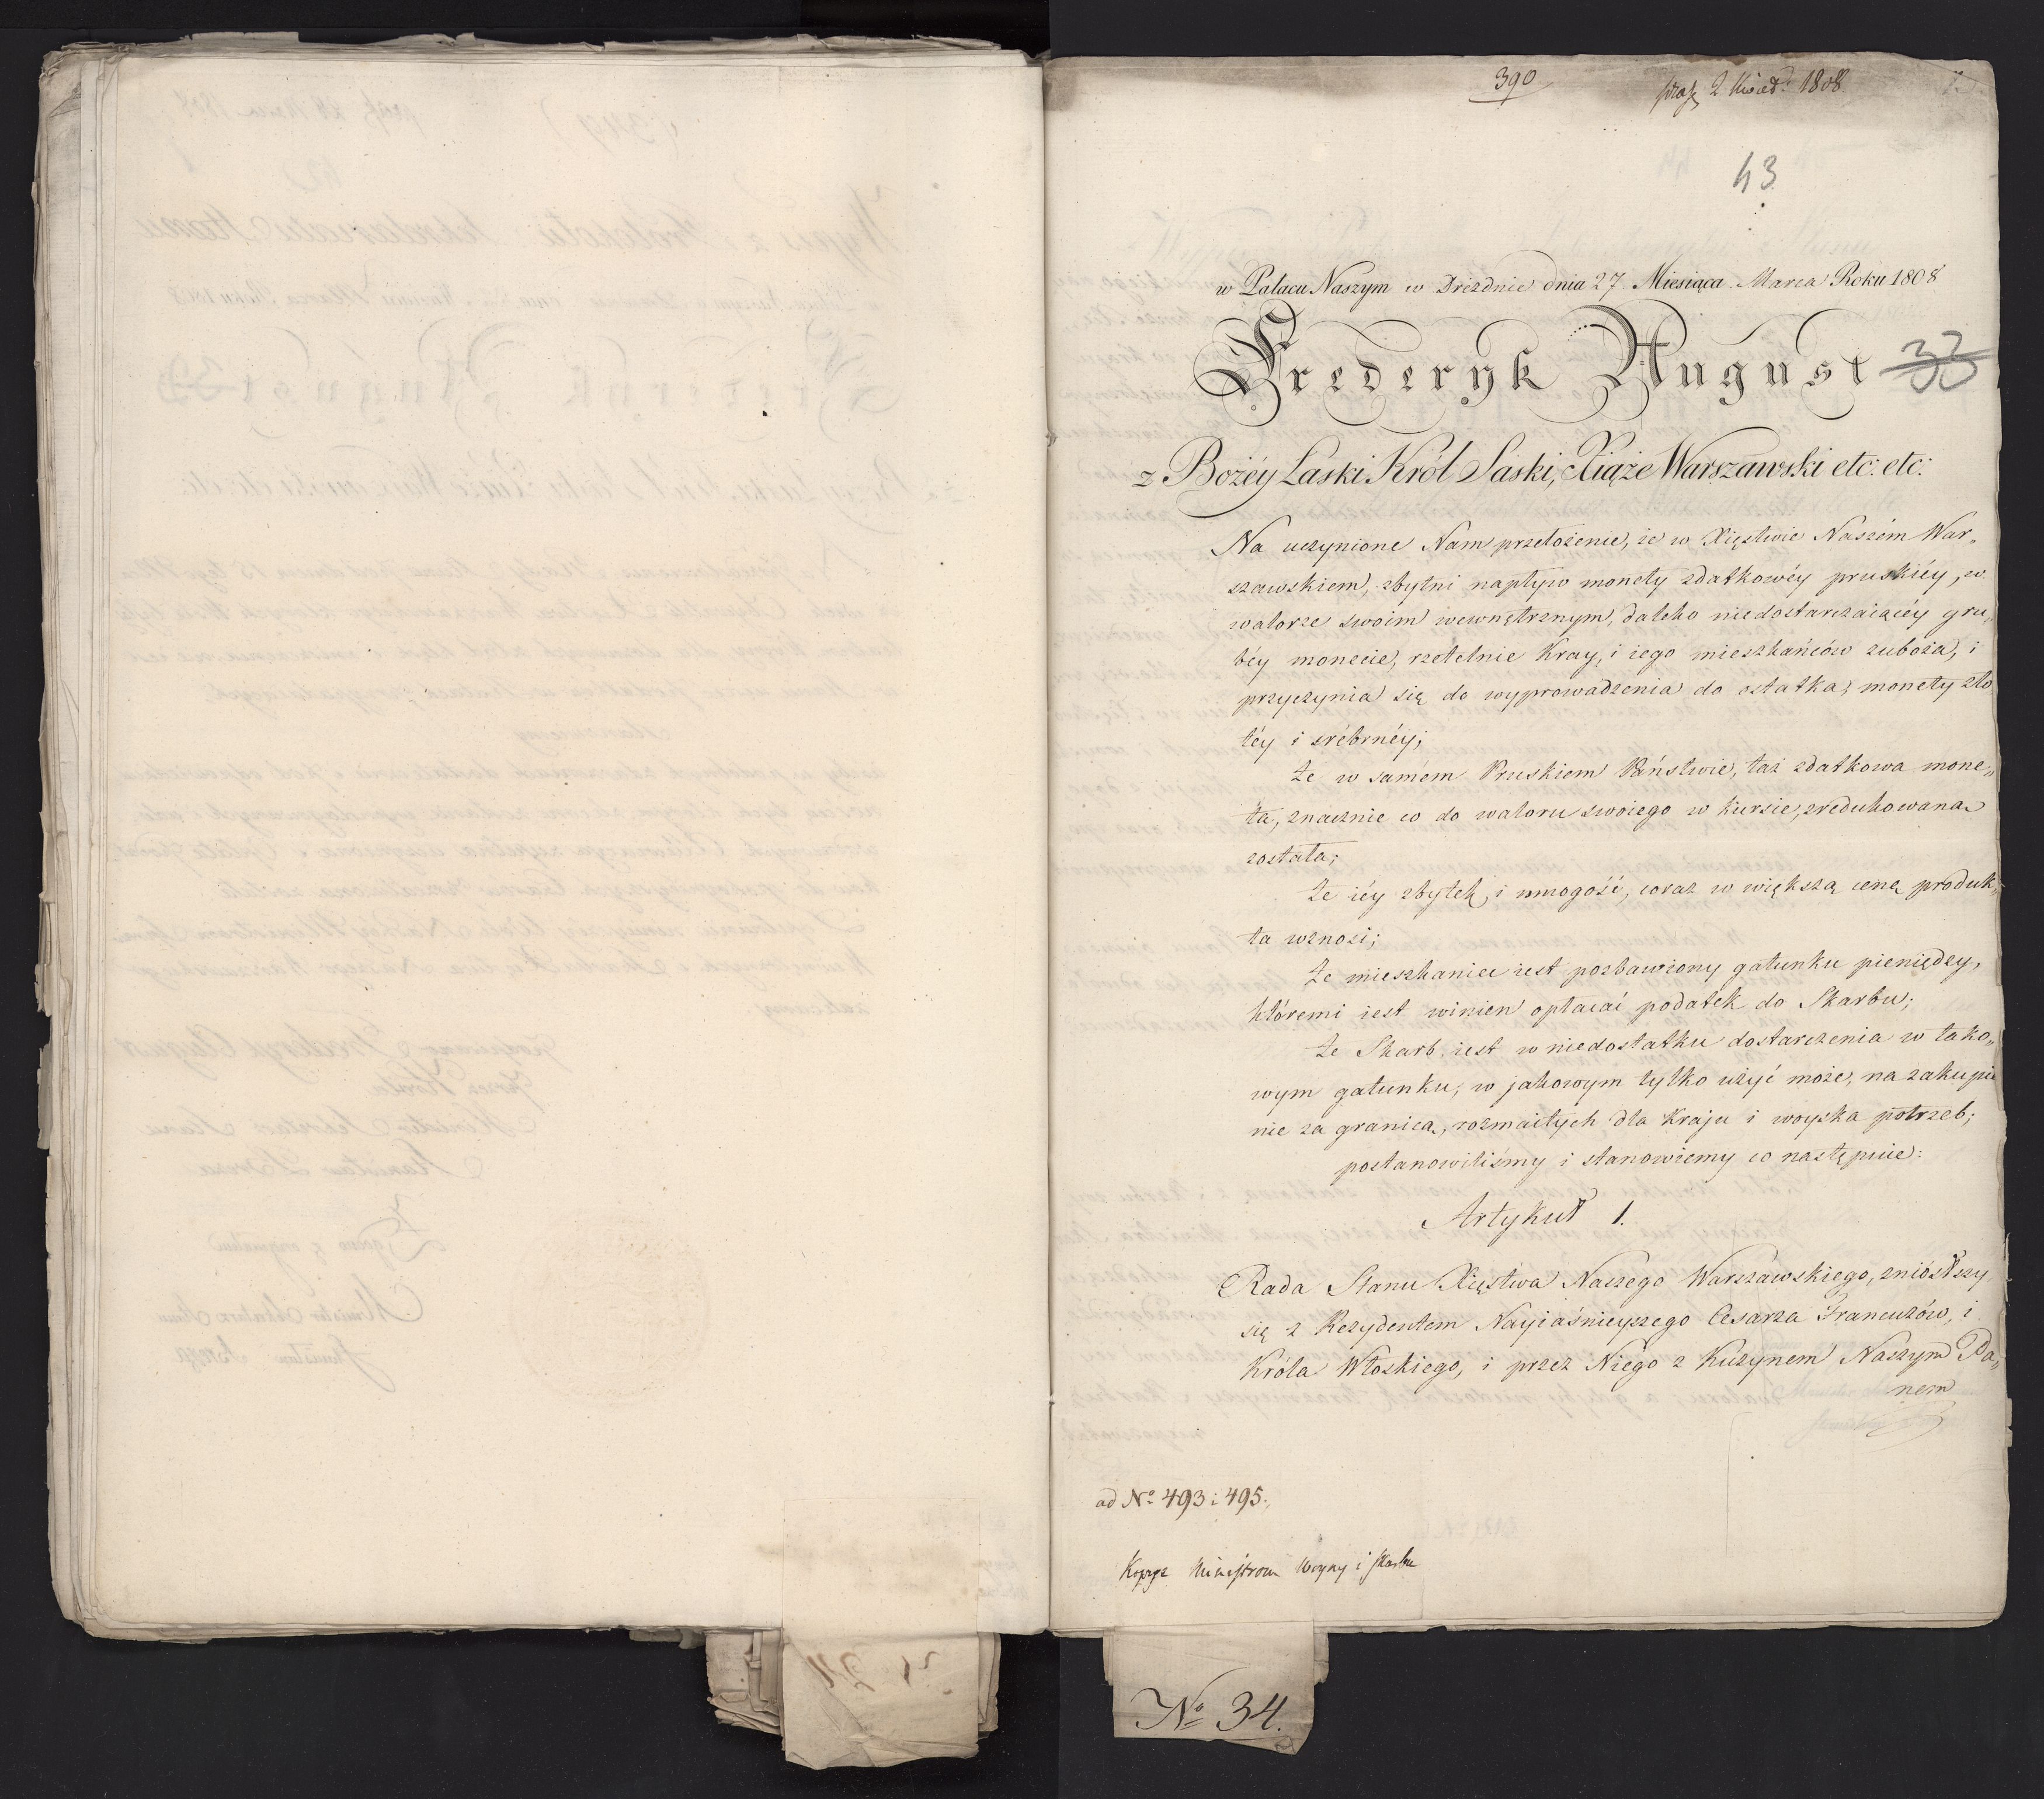 390
praes 2 Kwiet: 1808
43
w Pałacu Naszym w Dreźdnie dnia 27 Miesiąca Marca Roku 1808
Frederyk August
33
z Bożéy Łaski Król Saski, Xiąże Warszawski etc: etc:
Na uczynione Nam przełożenie, że w Xięstwie Naszém War„
szawskiem, zbytni napływ monety zdatkowéy pruskiéy, w
walorze swoim wewnętrznym, daleko niedostarczaiącéy gru„
béy monecie, rzetelnie Kray, i iego mieszkańców zuboża, i
przyczynia się do wyprowadzenia do ostatka, monety zło
téy i srébrnéy;
że w samém Pruskiem Państwie, taż zdatkowa mone„
ta, znacznie co do waloru swoiego w kursie, zredukowana
została;
że iéy zbytek, i mnogość, coraz w większą cenę produk„
ta wznosi;
że mieszkaniec iest pozbawiony gatunku pieniędzy,
któremi iest winien opłacać podatek do Skarbu;
że Skarb iest w niedostatku dostarczenia w tako„
wym gatunku, w jakowym tylko użyć może, na zakupie
nie za granicą, rozmaitych dla Kraju i woyska potrzeb;
postanowiliśmy i stanowiemy co następuie:
Artykuł 1.
Rada Stanu Xięstwa Naszego Warszawskiego, zniósłszy
się z Rezydentem Nayiaśnieyszego Cesarza Francuzów, i
Króla Włoskiego, i przez Niego z Kuzynem Naszym Pa„
nem
ad No 493 i 495.
Kopye Ministrom Woyny i Skarbu
No 34.